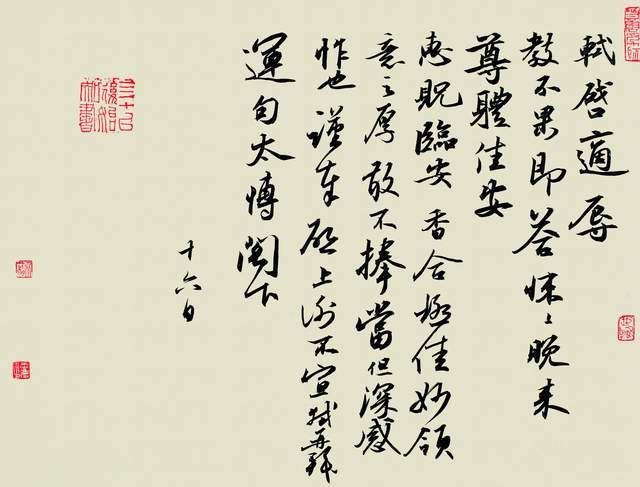 軾啓適辱
教不果即答悚〻晚来
尊體佳安
惠貺臨安香合極佳妙領
意之厚敢不捧當但深感
怍也謹奉啓上謝不宣軾再拜
運句太博閣下
十六日